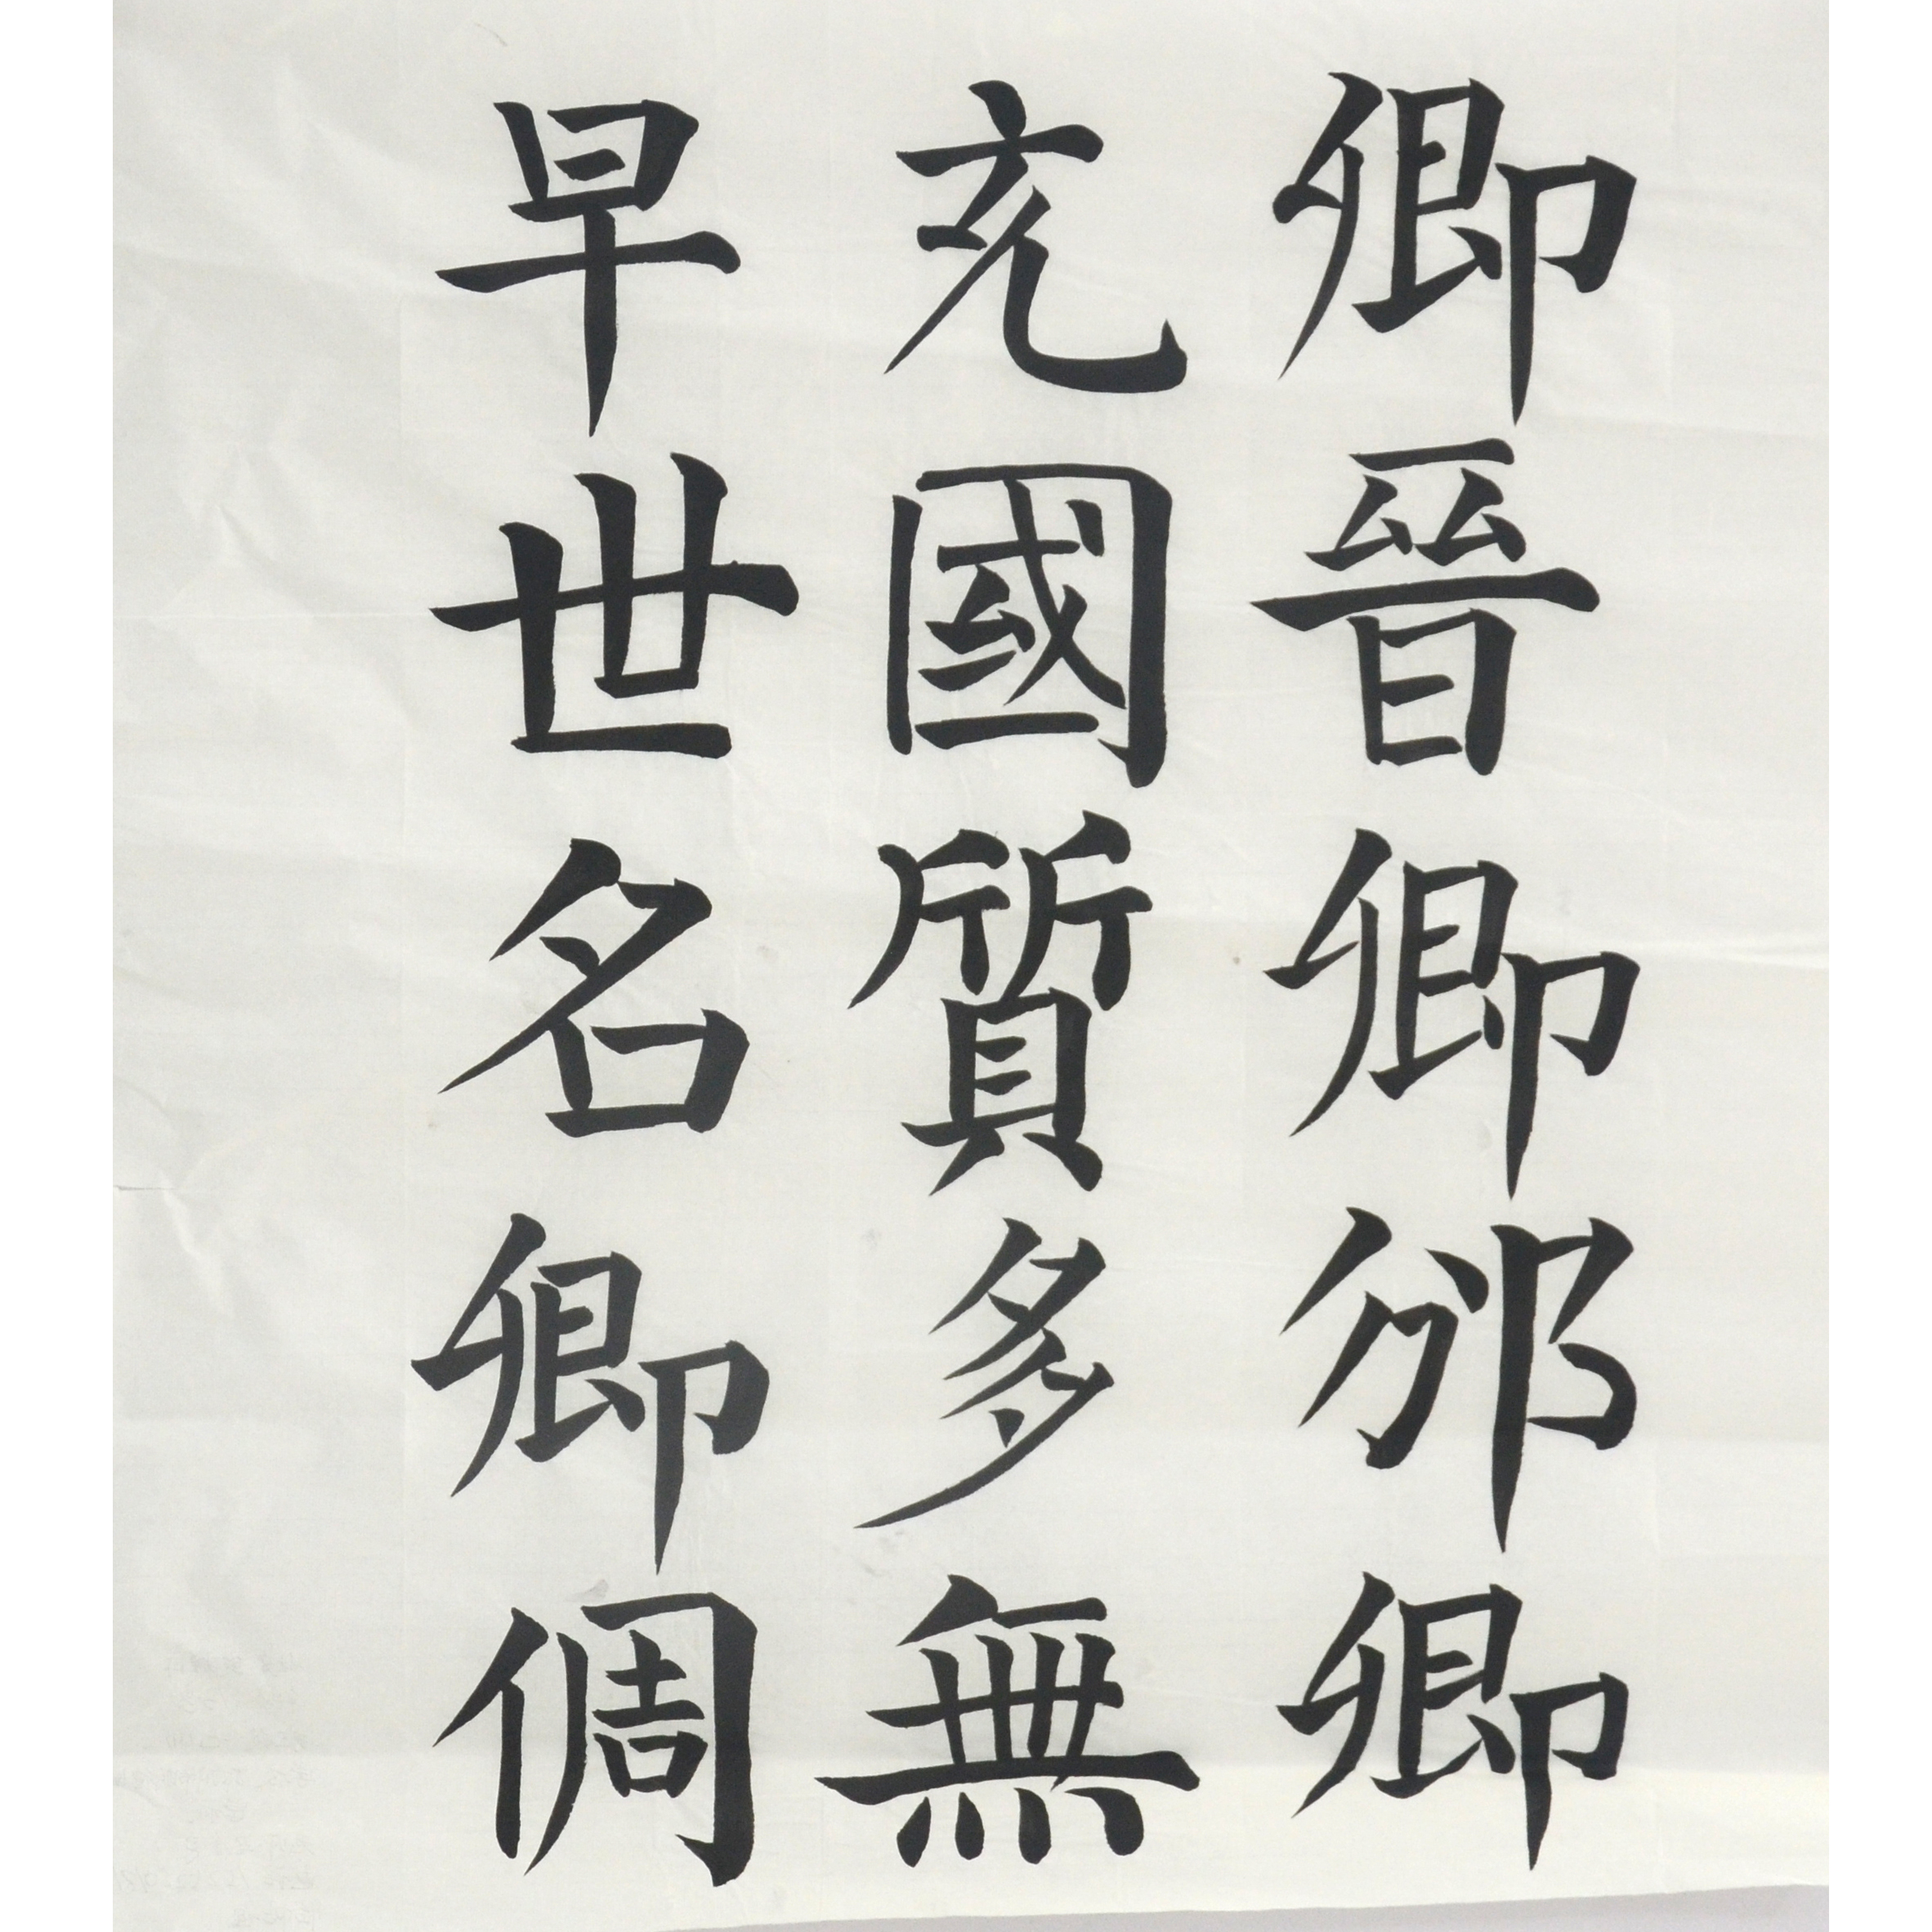 卿晉卿邠卿
充國質多無
早世名卿倜